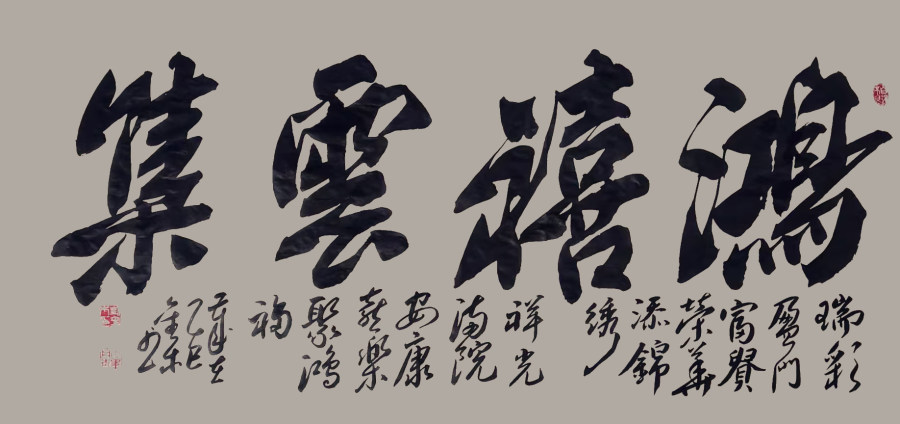 鴻禧雲集
瑞彩
盈門
富貴
榮華
添錦
绣
祥光
满院
安康
喜樂
聚鴻
福
歲在
乙巳